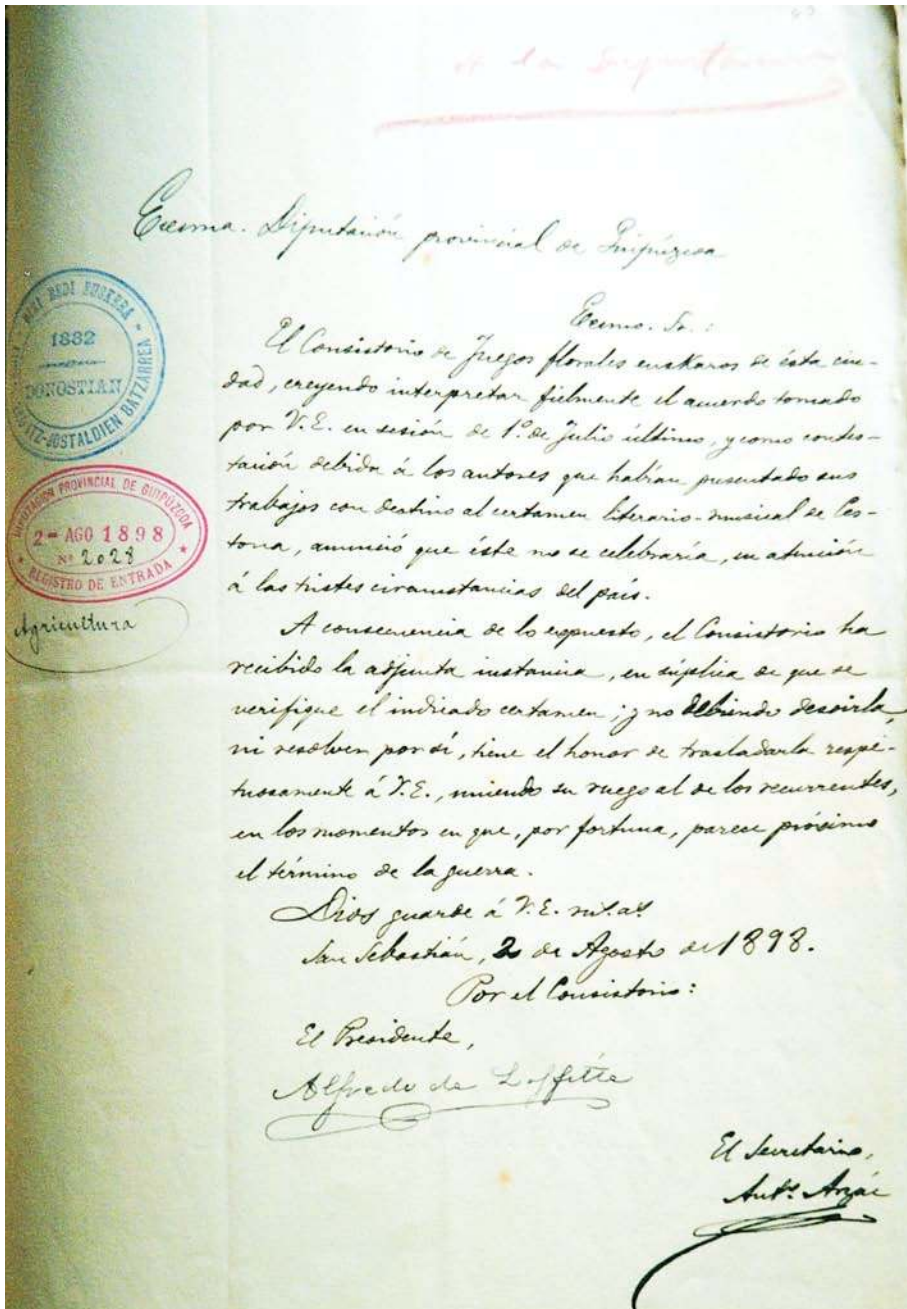 A la Diputación
Excma. Diputación provincial de Guipúzcoa
BETI BEDI EUSKERA
1882
DONOSTIAN
ITZ-JOSTALDIEN BATZARREA
DIPUTACION PROVINCIAL DE GUIPÚZCOA
2 - AGO 1898
Nº 2028
REGISTRO DE ENTRADA
Agricultura
Excmo. Sr.:
El Consistorio de Juegos florales euskaros de ésta ciu-
dad, creyendo interpretar fielmente el acuerdo tomado
por V.E. en sesión de 1º de Julio último, y como contes-
tación debida á los autores que habían presentado sus
trabajos con destino al certamen literario-musical de Ces-
tona, anunció que éste no se celebraría, en atención
á las tristes circunstancias del país.
A consecuencia de lo expuesto, el Consistorio ha
recibido la adjunta instancia, en súplica de que se
verifique el indicado certamen; y no debiendo desoirla,
ni resolver por sí, tiene el honor de trasladarla respe-
tuosamente á V.E., uniendo su ruego al de los recurrentes,
en los momentos en que, por fortuna, parece próximo
el término de la guerra.
Dios guarde á V.E. ms. as.
San Sebastián, 2 de Agosto de 1898.
Por el Consistorio:
El Presidente,
Alfredo de Laffitte
El Secretario,
Antº Arzác